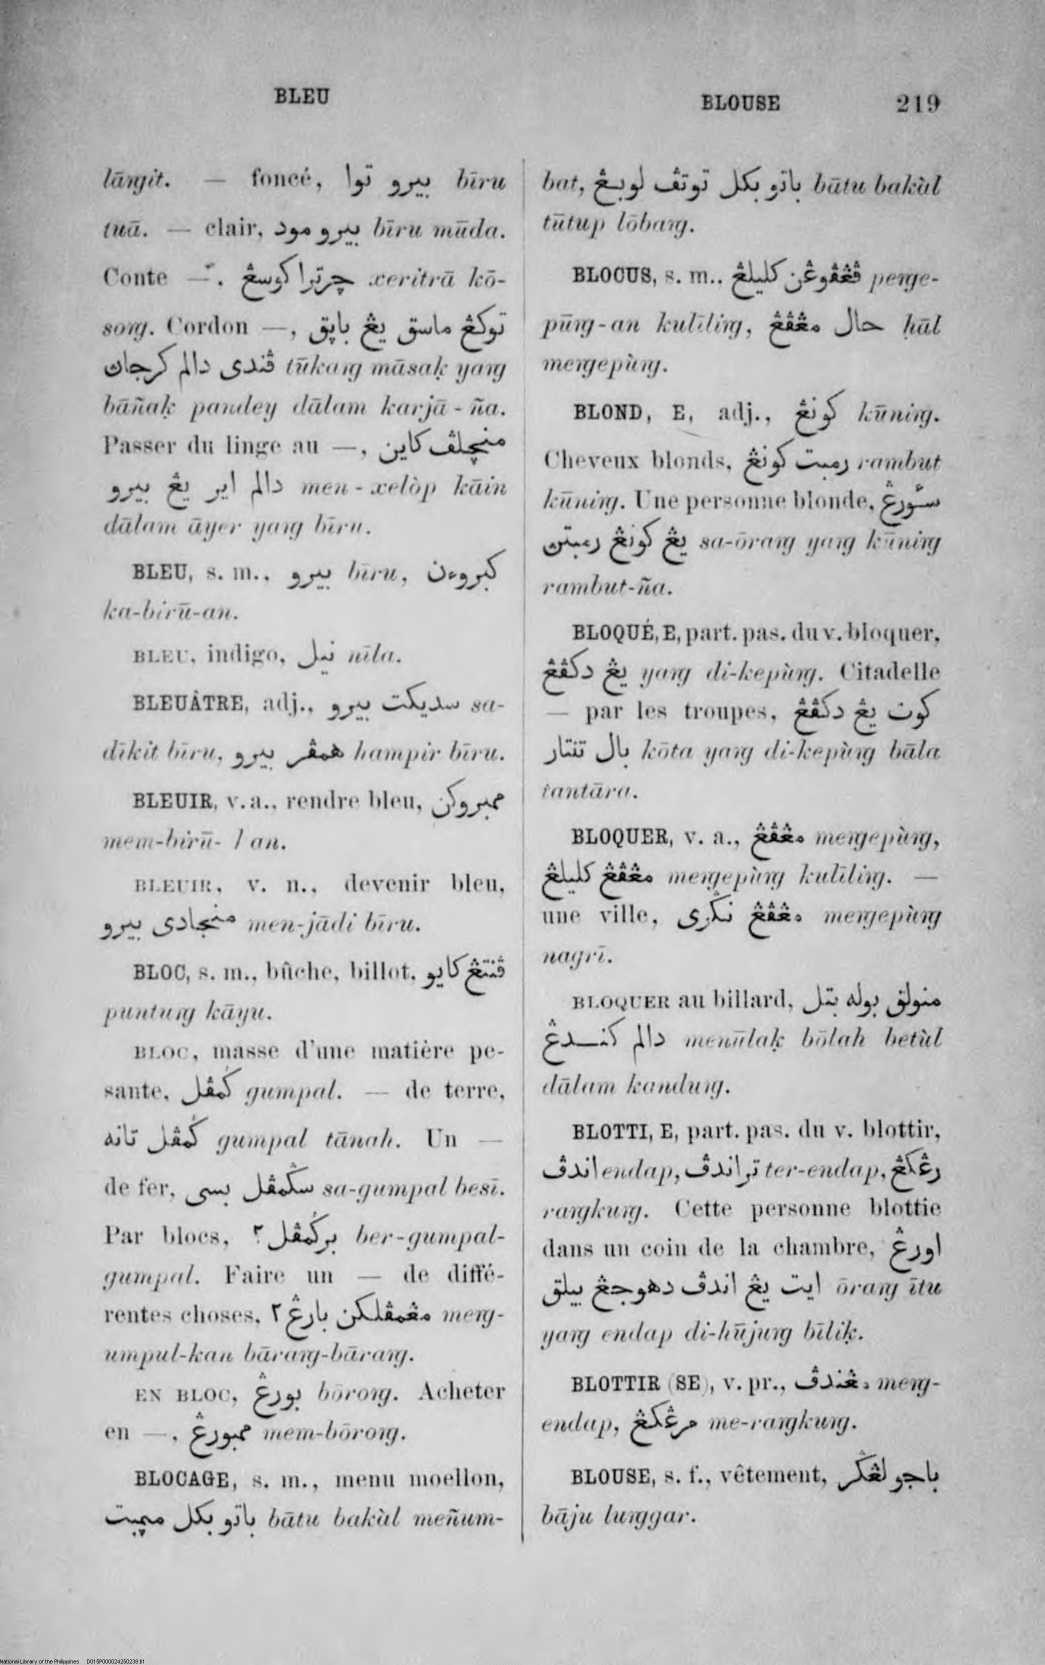 BLEU
BLOUSE 219
lāŋgit. — foncé, بيرو توا bīru
tuā. — clair, بيرو مود bīru mūda.
Conte —, چرترا كوسڠ xeritrā kō-
soŋg. Cordon —, توكڠ ماسق يڠ باپق
ڤندى دالم كرجاڽ tūkaŋg māsaḳ yaŋg
bāñaḳ pandey dālam karjā-ña.
Passer du linge au —, منچلڤ كاين
دالم اير يڠ بيرو men-xelòp kāin
dālam āyer yaŋg bīru.
BLEU, s. m., بيرو bīru, كبروءن
ka-birū-an.
BLEU, indigo, نيل nīla.
BLEUÂTRE, adj., سديكت بيرو sa-
dīkit bīru, همڤر بيرو hampir bīru.
BLEUIR, v. a., rendre bleu, ممبروكن
mem-birū- an.
BLEUIR, v. n., devenir bleu,
منجادى بيرو men-jādi bīru.
BLOC, s. m., bûche, billot, ڤنتڠ كايو
puntuŋg kāyu.
BLOC, masse d'une matière pe-
sante, ݢمڤل gumpal. — de terre,
ݢمڤل تانه gumpal tānah. Un —
de fer, سݢمڤل بسى sa-gumpal besī.
Par blocs, برݢمڤل٢ ber-gumpal-
gumpal. Faire un — de diffé-
rentes choses, مڠمڤلكن بارڠ٢ meŋg-
umpul-kan bāraŋg-bāraŋg.
EN BLOC, بورڠ bōroŋg. Acheter
en —, ممبورڠ mem-bōroŋg.
BLOCAGE, s. m., menu moellon,
باتو بكل مڽمبت bātu bakùl meñum-
bat, باتو بكل توتڤ لوبڠ bātu bakùl
tūtup lōbaŋg.
BLOCUS, s. m., ڤڠڤوڠن كليلڠ peŋge-
pūŋg-an kulīliŋg, حال مڠڤڠ ḥāl
meŋgepùŋg.
BLOND, E, adj., كونڠ kūniŋg.
Cheveux blonds, رمبت كونڠ rambut
kūniŋg. Une personne blonde, سئورڠ
يڠ كونڠ رمبتڽ sa-ōraŋg yaŋg kūniŋg
rambut-ña.
BLOQUÉ, E, part. pas. du v. bloquer,
يڠ دكڤڠ yaŋg di-kepùŋg. Citadelle
— par les troupes, كوت يڠ دكڤڠ
بال تنتار kōta yaŋg di-kepùŋg bāla
tantāra.
BLOQUER, v. a., مڠڤڠ meŋgepùŋg,
مڠڤڠ كليلڠ meŋgepùŋg kulīliŋg. —
une ville, مڠڤڠ نݢرى meŋgepùŋg
nagrī.
BLOQUER au billard, منولق بوله بتل
دالم كندڠ menūlaḳ bōlah betùl
dālam kanduŋg.
BLOTTI, E, part. pas. du v. blottir,
اندڤ endap, تراندڤ ter-endap, رڠكڠ
raŋgkuŋg. Cette personne blottie
dans un coin de la chambre, اورڠ
ايت يڠ اندڤ دهوجڠ بيلق ōraŋg ītu
yaŋg endap di-hūjuŋg bīliḳ.
BLOTTIR (SE), v. pr., مڠندڤ meŋg-
endap, مرڠكڠ me-raŋgkuŋg.
BLOUSE, s. f., vêtement, باجو لڠݢر
bāju luŋggar.
National Library of the Philippines